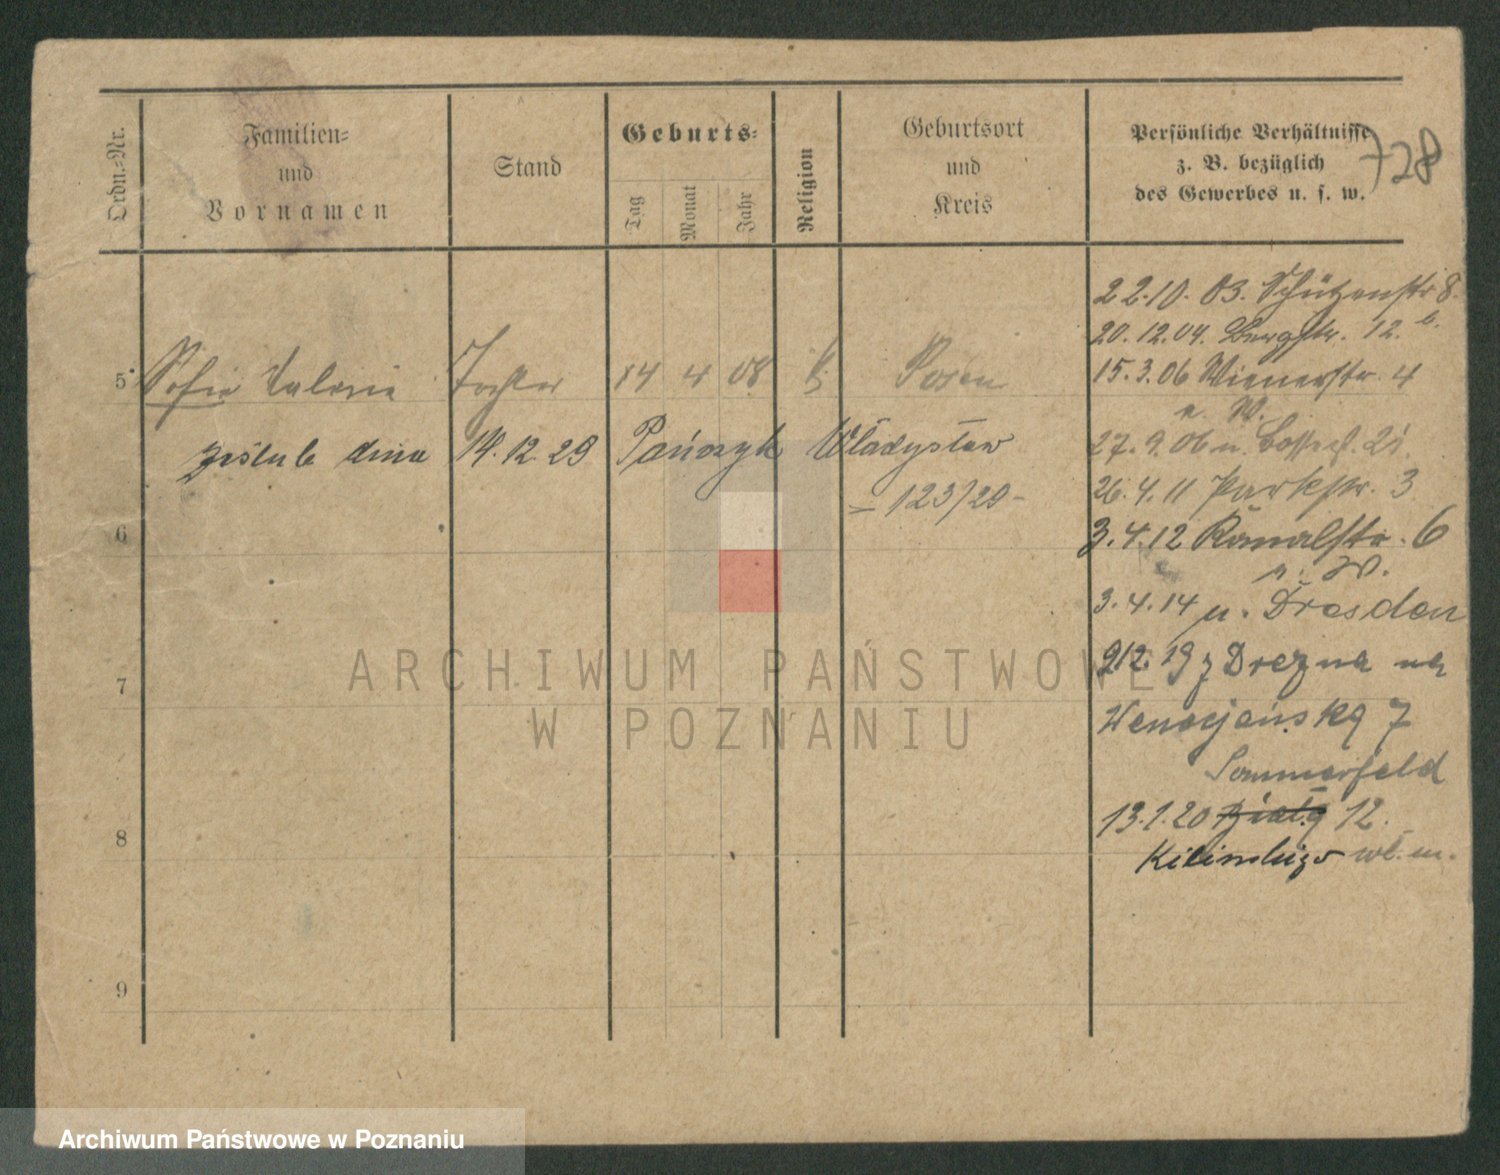 Ordn.=Nr.
Familien=
und
Vornamen
Stand
Geburts=
Tag
Monat
Jahr
Religion
Geburtsort
und
Kreis
Persönliche Verhältnisse
z. B. bezüglich
des Gewerbes u. s. w.
728
22.10.03. Schützenstr 8.
20.12.04. Bergstr. 12. b.
5 Sofie Valerie Tochter 14 4 08 Posen
15.3.06 Wienerstr. 4
n. W.
zaślub. dnia 14.12.29 Pańczyk Władysław
27.9.06 n.
– 123/29 –
26.4.11 Parkstr. 3
6
3.4.12 Kanalstr. 6
n. W.
3.4.14 n. Dresden
7
9.12.19 z Drezna na
Wenecjańską 7
Sommerfeld
8
13.1.20 12.
Kilińskiego wł. m.
9
ARCHIWUM PAŃSTWOWE
W POZNANIU
Archiwum Państwowe w Poznaniu